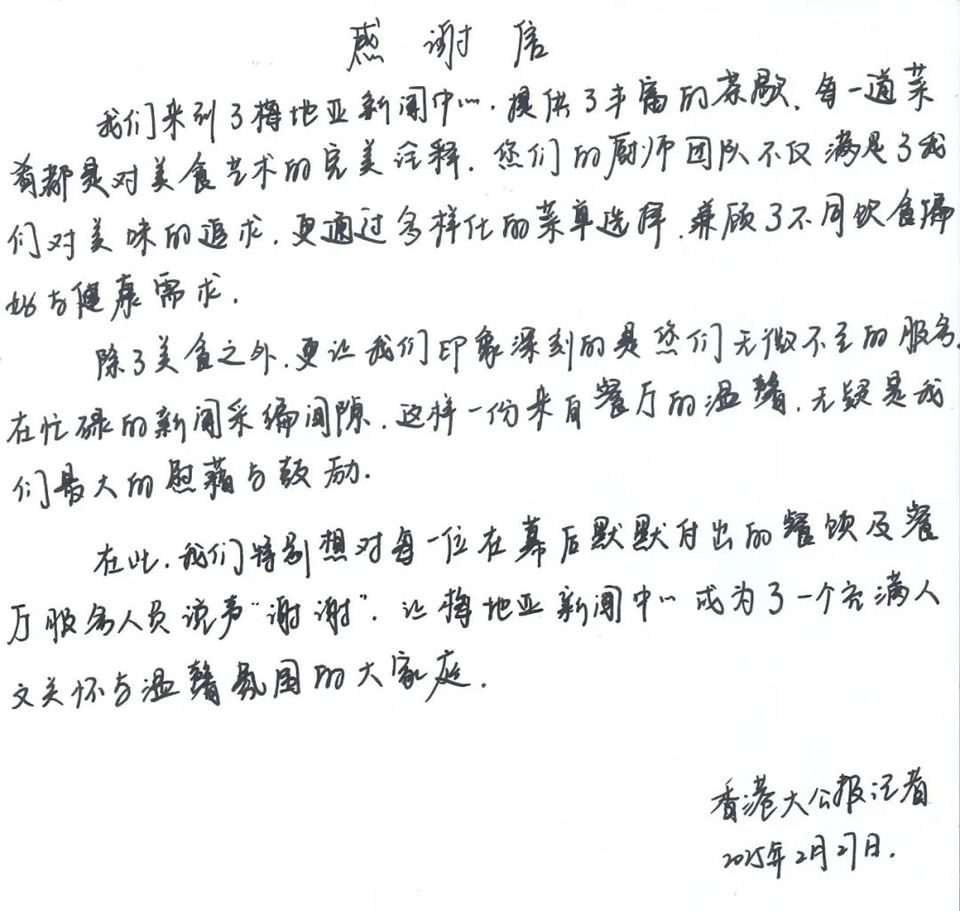 感谢信
我们来到了梅地亚新闻中心，提供了丰富的茶歇，每一道菜
肴都是对美食艺术的完美诠释。您们的厨师团队不仅满足了我
们对美味的追求，更通过多样化的菜单选择，兼顾了不同饮食偏
好与健康需求。
除了美食之外，更让我们印象深刻的是您们无微不至的服务，
在忙碌的新闻采编间隙，这样一份来自餐厅的温馨，无疑是我
们最大的慰藉与鼓励。
在此，我们特别想对每一位在幕后默默付出的餐饮及餐
厅服务人员说声“谢谢”。让梅地亚新闻中心成为了一个充满人
文关怀与温馨氛围的大家庭。
香港大公报记者
2025年2月27日.